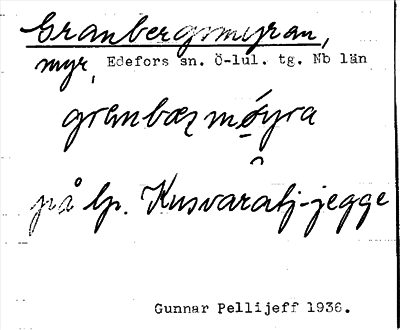 Granbergsmyran,
myr, Edefors sn. Ö-lul. tg. Nb län
granbærmǿyra
på lp. Kusvaratj-jegge
Gunnar Pellijeff 1936.